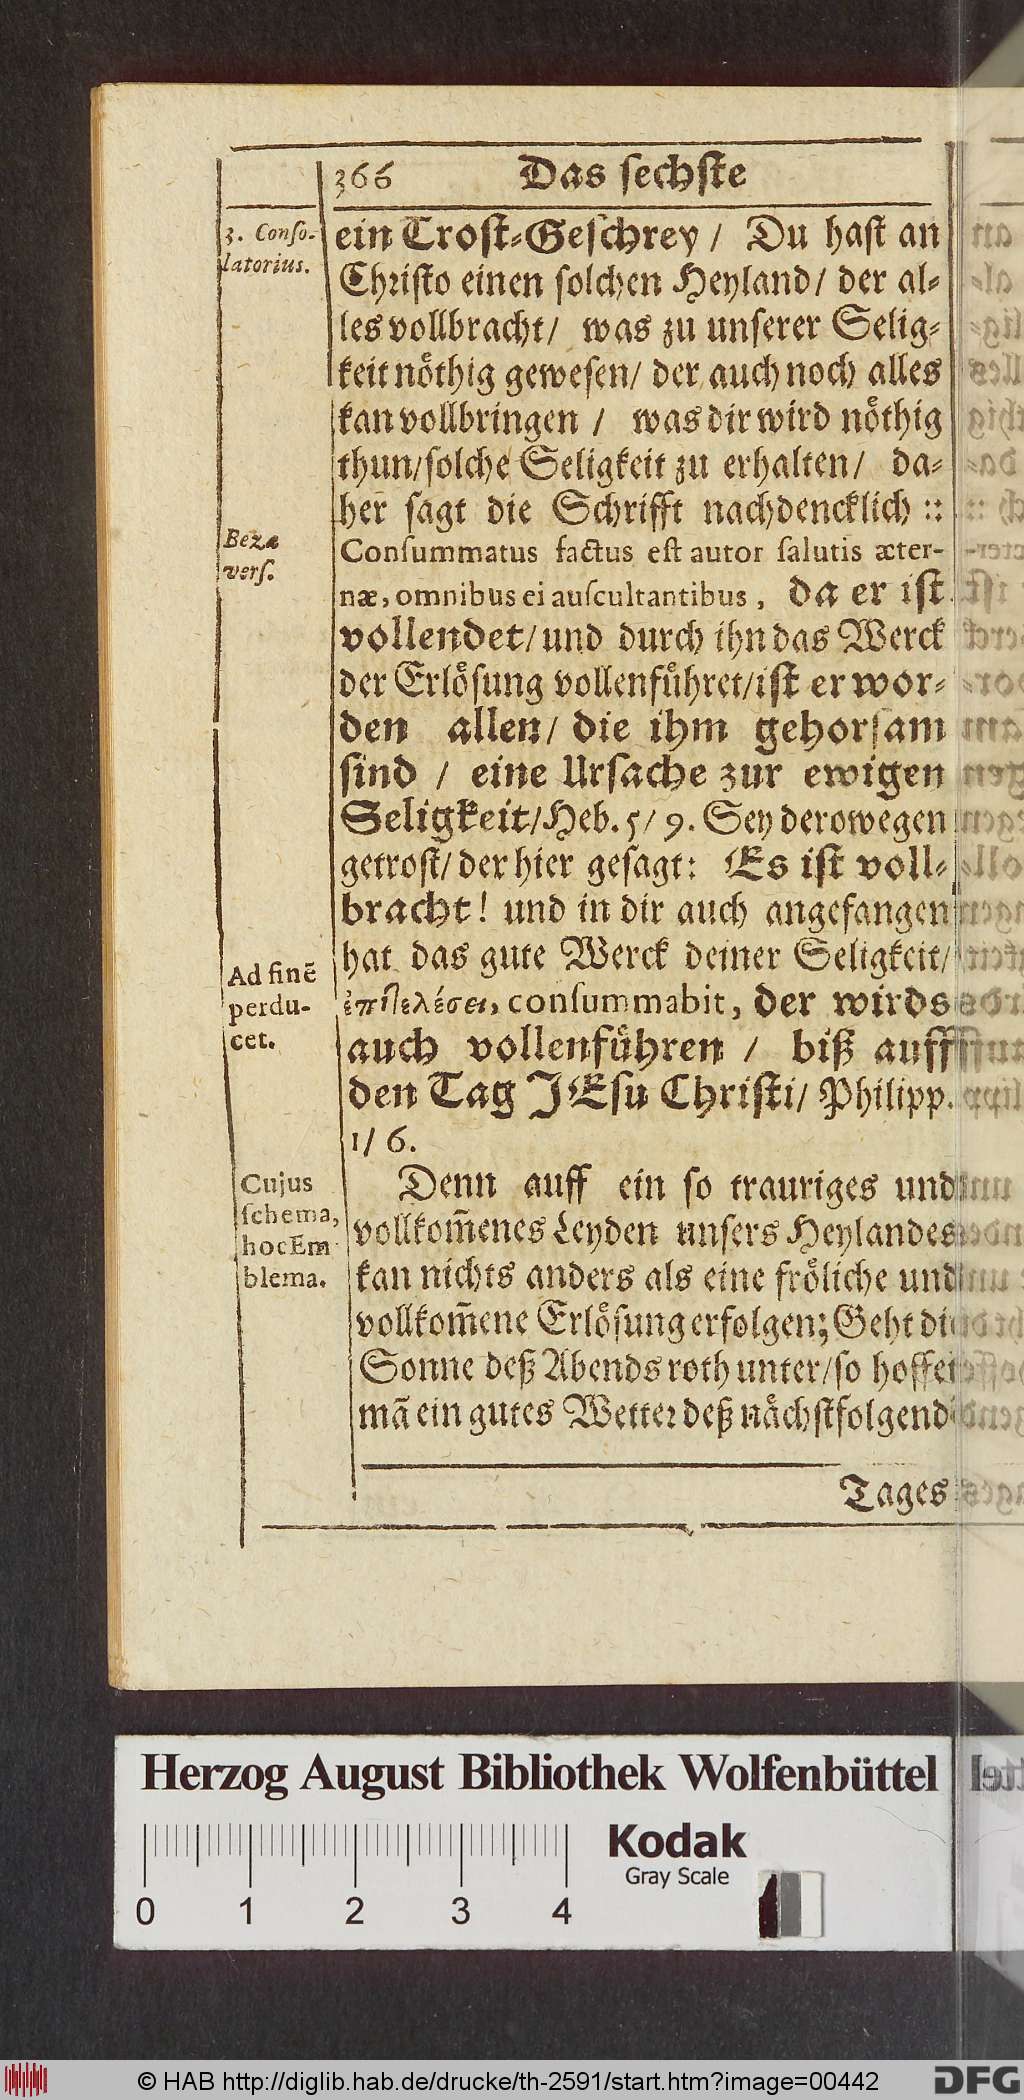 366 Das sechste
3. Conso-
latorius.
ein Trost-Geschrey / Du hast an
Christo einen solchen Heyland / der al-
les vollbracht / was zu unserer Selig-
keit nöthig gewesen / der auch noch alles
kan vollbringen / was dir wird nöthig
thun / solche Seligkeit zu erhalten / da-
her sagt die Schrifft nachdencklich ::
Bezæ
vers.
Consummatus factus est autor salutis æter-
næ, omnibus ei auscultantibus, da er ist
vollendet / und durch ihn das Werck
der Erlösung vollenführet / ist er wor-
den allen / die ihm gehorsam
sind / eine Ursache zur ewigen
Seligkeit / Heb. 5 / 9. Sey derowegen
getrost / der hier gesagt: Es ist voll-
bracht! und in dir auch angefangen
hat das gute Werck deiner Seligkeit /
Ad finē
perdu-
cet.
ἐπιτελέσει, consummabit, der wirds
auch vollenführen / biß auff
den Tag JEsu Christi / Philipp.
1 / 6.
Cujus
schema,
hoc Em
blema.
Denn auff ein so trauriges und
vollkom̄enes Leyden unsers Heylandes
kan nichts anders als eine fröliche und
vollkom̄ene Erlösung erfolgen; Geht di
Sonne deß Abends roth unter / so hoffet
mā ein gutes Wetter deß nächstfolgend
Tages
Herzog August Bibliothek Wolfenbüttel
Kodak
Gray Scale
0 1 2 3 4
© HAB http://diglib.hab.de/drucke/th-2591/start.htm?image=00442
DFG